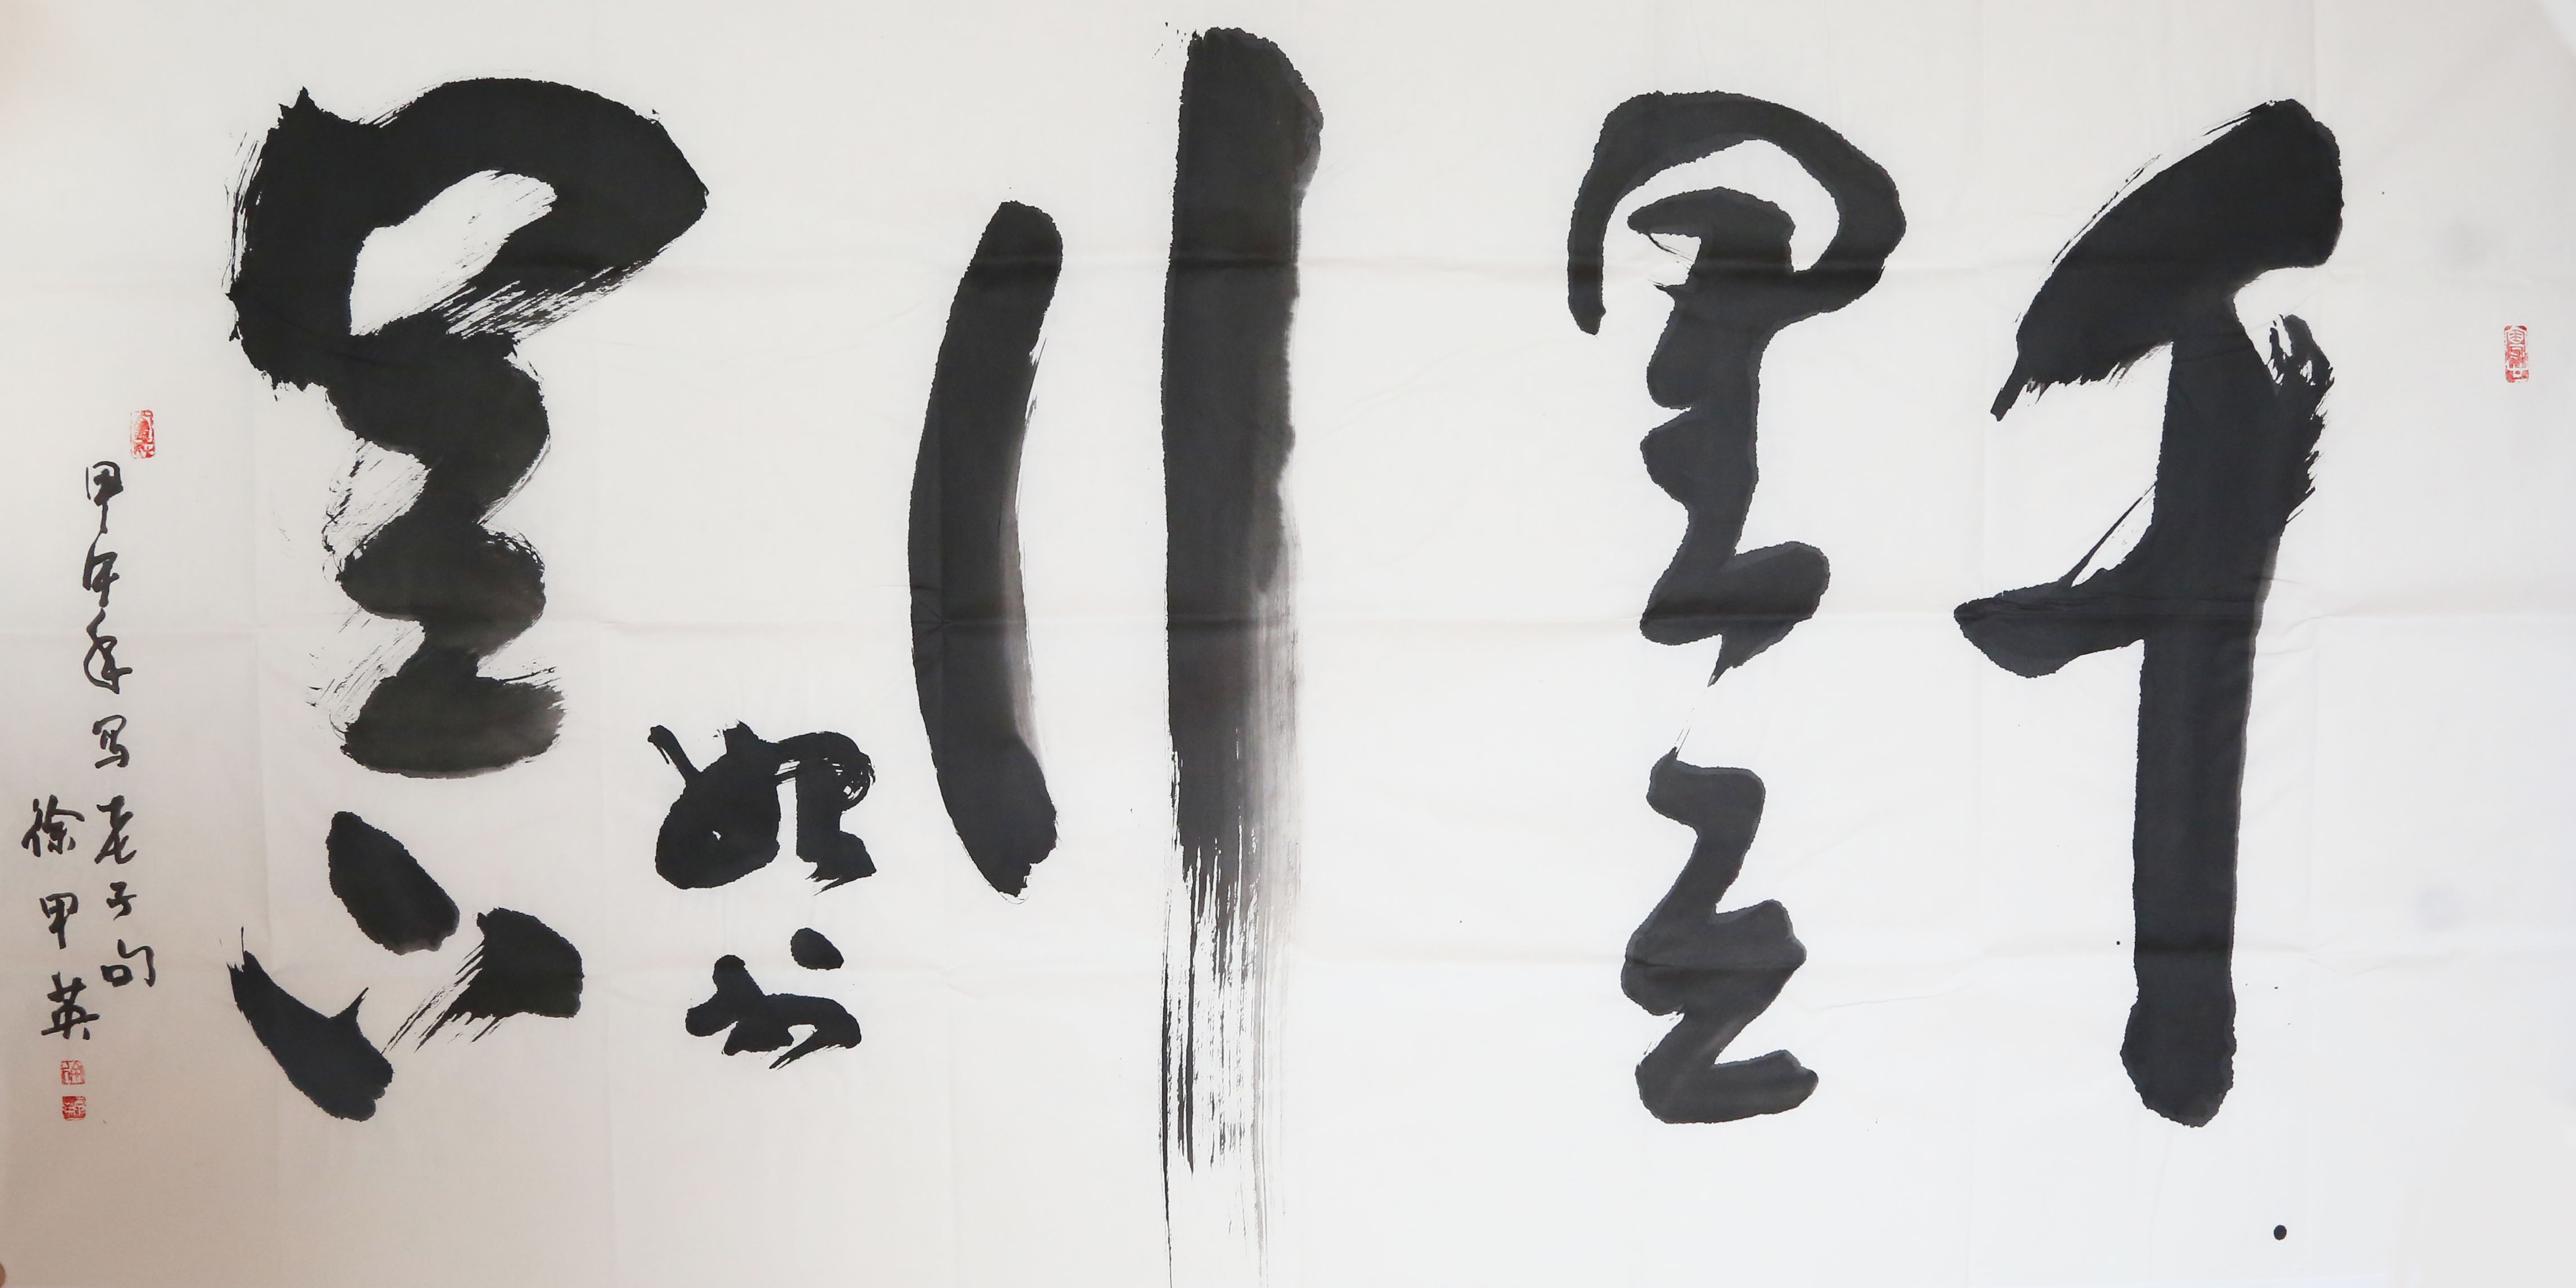 千
里之
行
始於
足下
甲申年写老子句
徐甲英